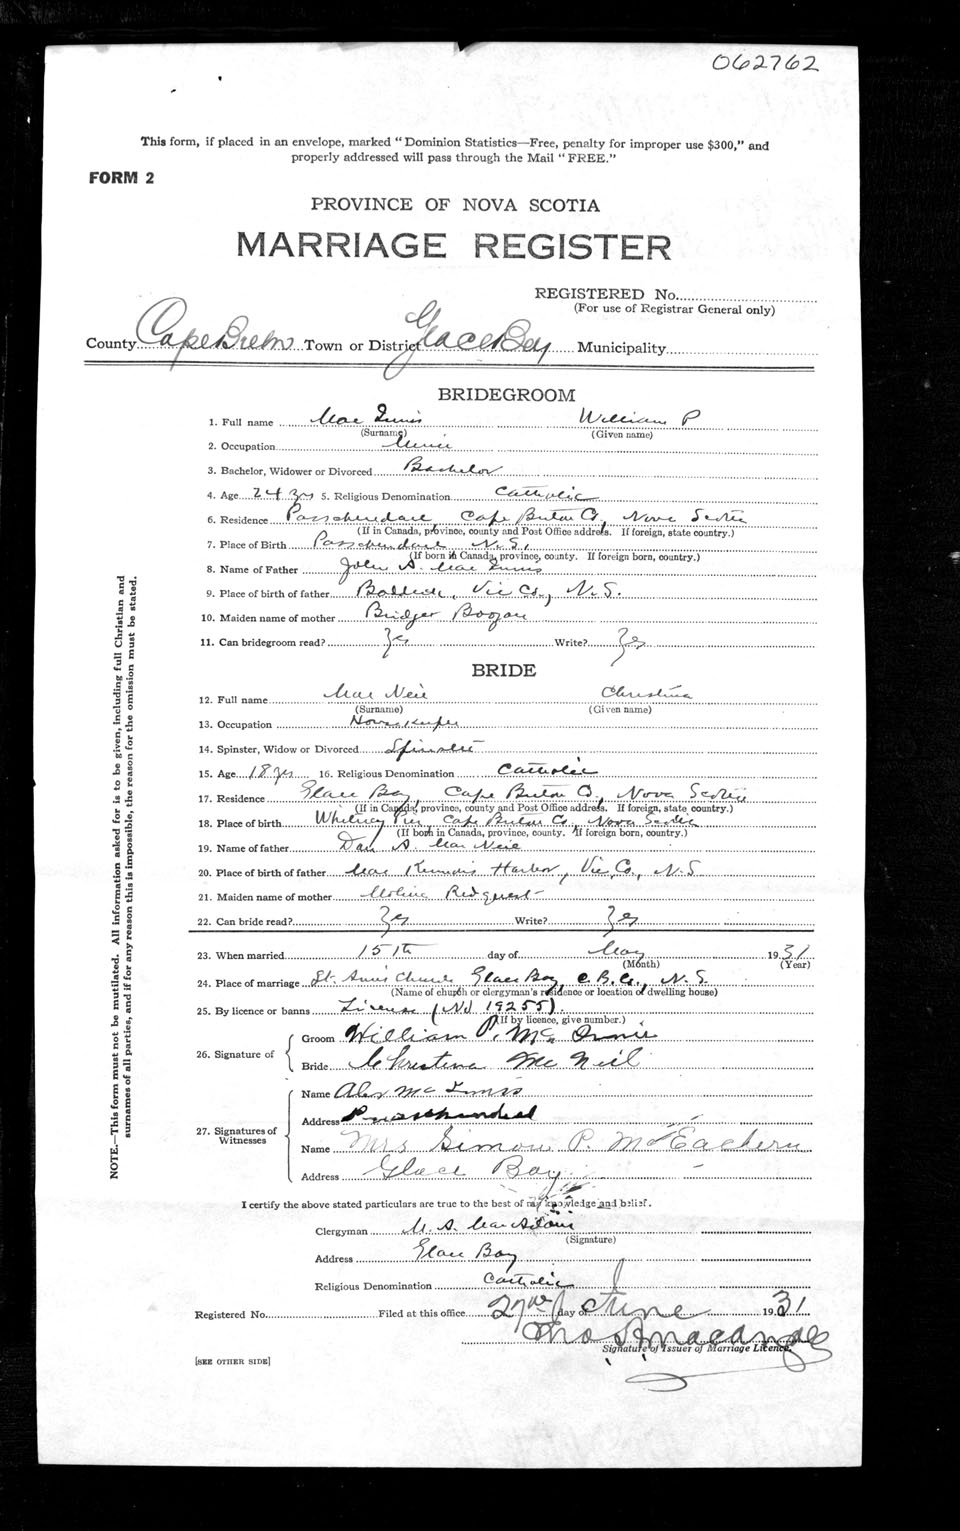 062762
This form, if placed in an envelope, marked "Dominion Statistics—Free, penalty for improper use $300," and
properly addressed will pass through the Mail "FREE."
FORM 2
PROVINCE OF NOVA SCOTIA
MARRIAGE REGISTER
REGISTERED No.
(For use of Registrar General only)
County Cape Breton Town or District Glace Bay Municipality
BRIDEGROOM
1. Full name Mac Innis William P
(Surname) (Given name)
2. Occupation Miner
3. Bachelor, Widower or Divorced Bachelor
4. Age 24 yrs 5. Religious Denomination Catholic
6. Residence Passchendale, Cape Breton Co, Nova Scotia
(If in Canada, province, county and Post Office address. If foreign, state country.)
7. Place of Birth Passchendale N.S.
(If born in Canada, province, county. If foreign born, country.)
8. Name of Father John A. Mac Innis
9. Place of birth of father Baddeck, Vic Co., N.S.
10. Maiden name of mother
11. Can bridegroom read? Yes Write? Yes
BRIDE
12. Full name Mac Neil Christina
(Surname) (Given name)
13. Occupation Housekeeper
14. Spinster, Widow or Divorced Spinster
15. Age 18 yrs 16. Religious Denomination Catholic
17. Residence Glace Bay, Cape Breton Co, Nova Scotia
(If in Canada, province, county and Post Office address. If foreign, state country.)
18. Place of birth Whitney Pier, Cape Breton Co, Nova Scotia
(If born in Canada, province, county. If foreign born, country.)
19. Name of father Dan A. Mac Neil
20. Place of birth of father Mac Kinnons Harbor, Vic, Co., N.S
21. Maiden name of mother
22. Can bride read? Yes Write? Yes
23. When married 15th day of May 1931
(Month) (Year)
24. Place of marriage St. Anns Church Glace Bay, C.B. Co., N.S.
(Name of church or clergyman's residence or location of dwelling house)
25. By licence or banns License (No 19255).
(If by licence, give number.)
26. Signature of
Groom William P. Mc Innis
Bride Christena Mc Neil
27. Signatures of Witnesses
Name Alex Mc Innis
Address
Name Mrs Simon P. McEachern
Address Glace Bay
I certify the above stated particulars are true to the best of my knowledge and belief.
Clergyman M. A. Mac Adam
(Signature)
Address Glace Bay
Religious Denomination Catholic
Registered No. Filed at this office 27 day of June 1931
Signature of Issuer of Marriage Licence.
[SEE OTHER SIDE]
NOTE.—This form must not be mutilated. All information asked for is to be given, including full Christian and
surnames of all parties, and if for any reason this is impossible, the reason for the omission must be stated.